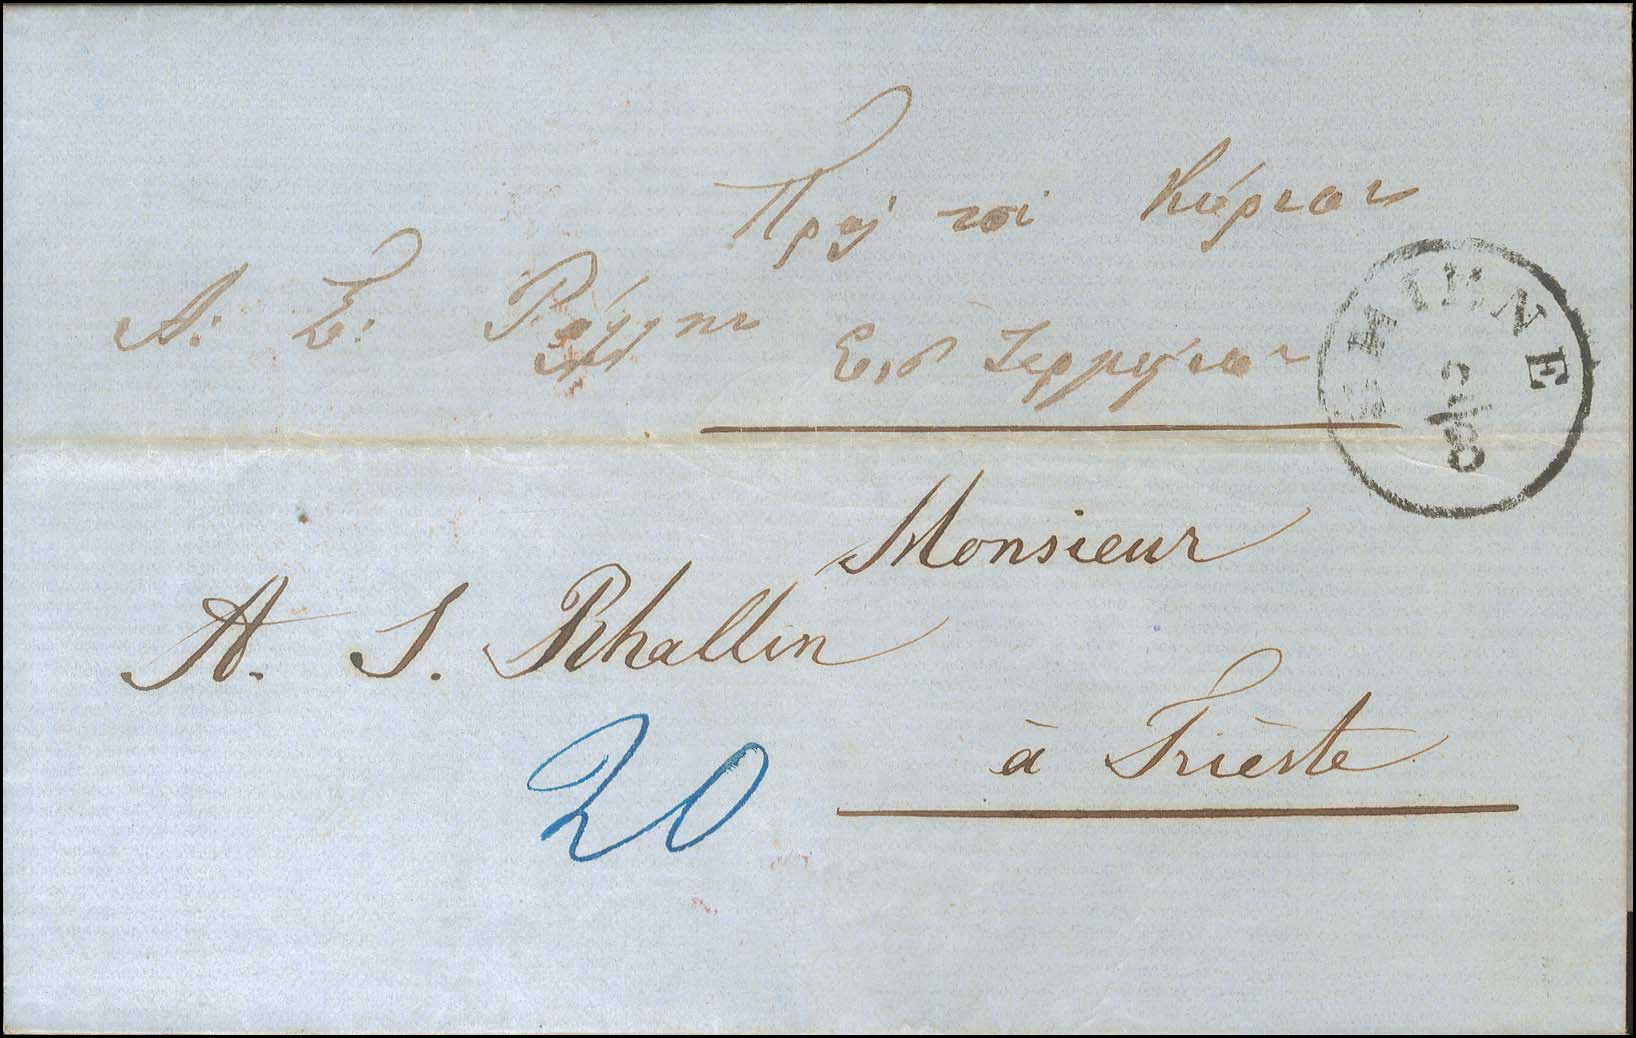 Πρὸς τὸν Κύριον
Α: Σ: Ράλλην
Εἰς Τεργέστην
SMIRNE
2/8
Monsieur
A. S. Rhallin
à Trièste
20